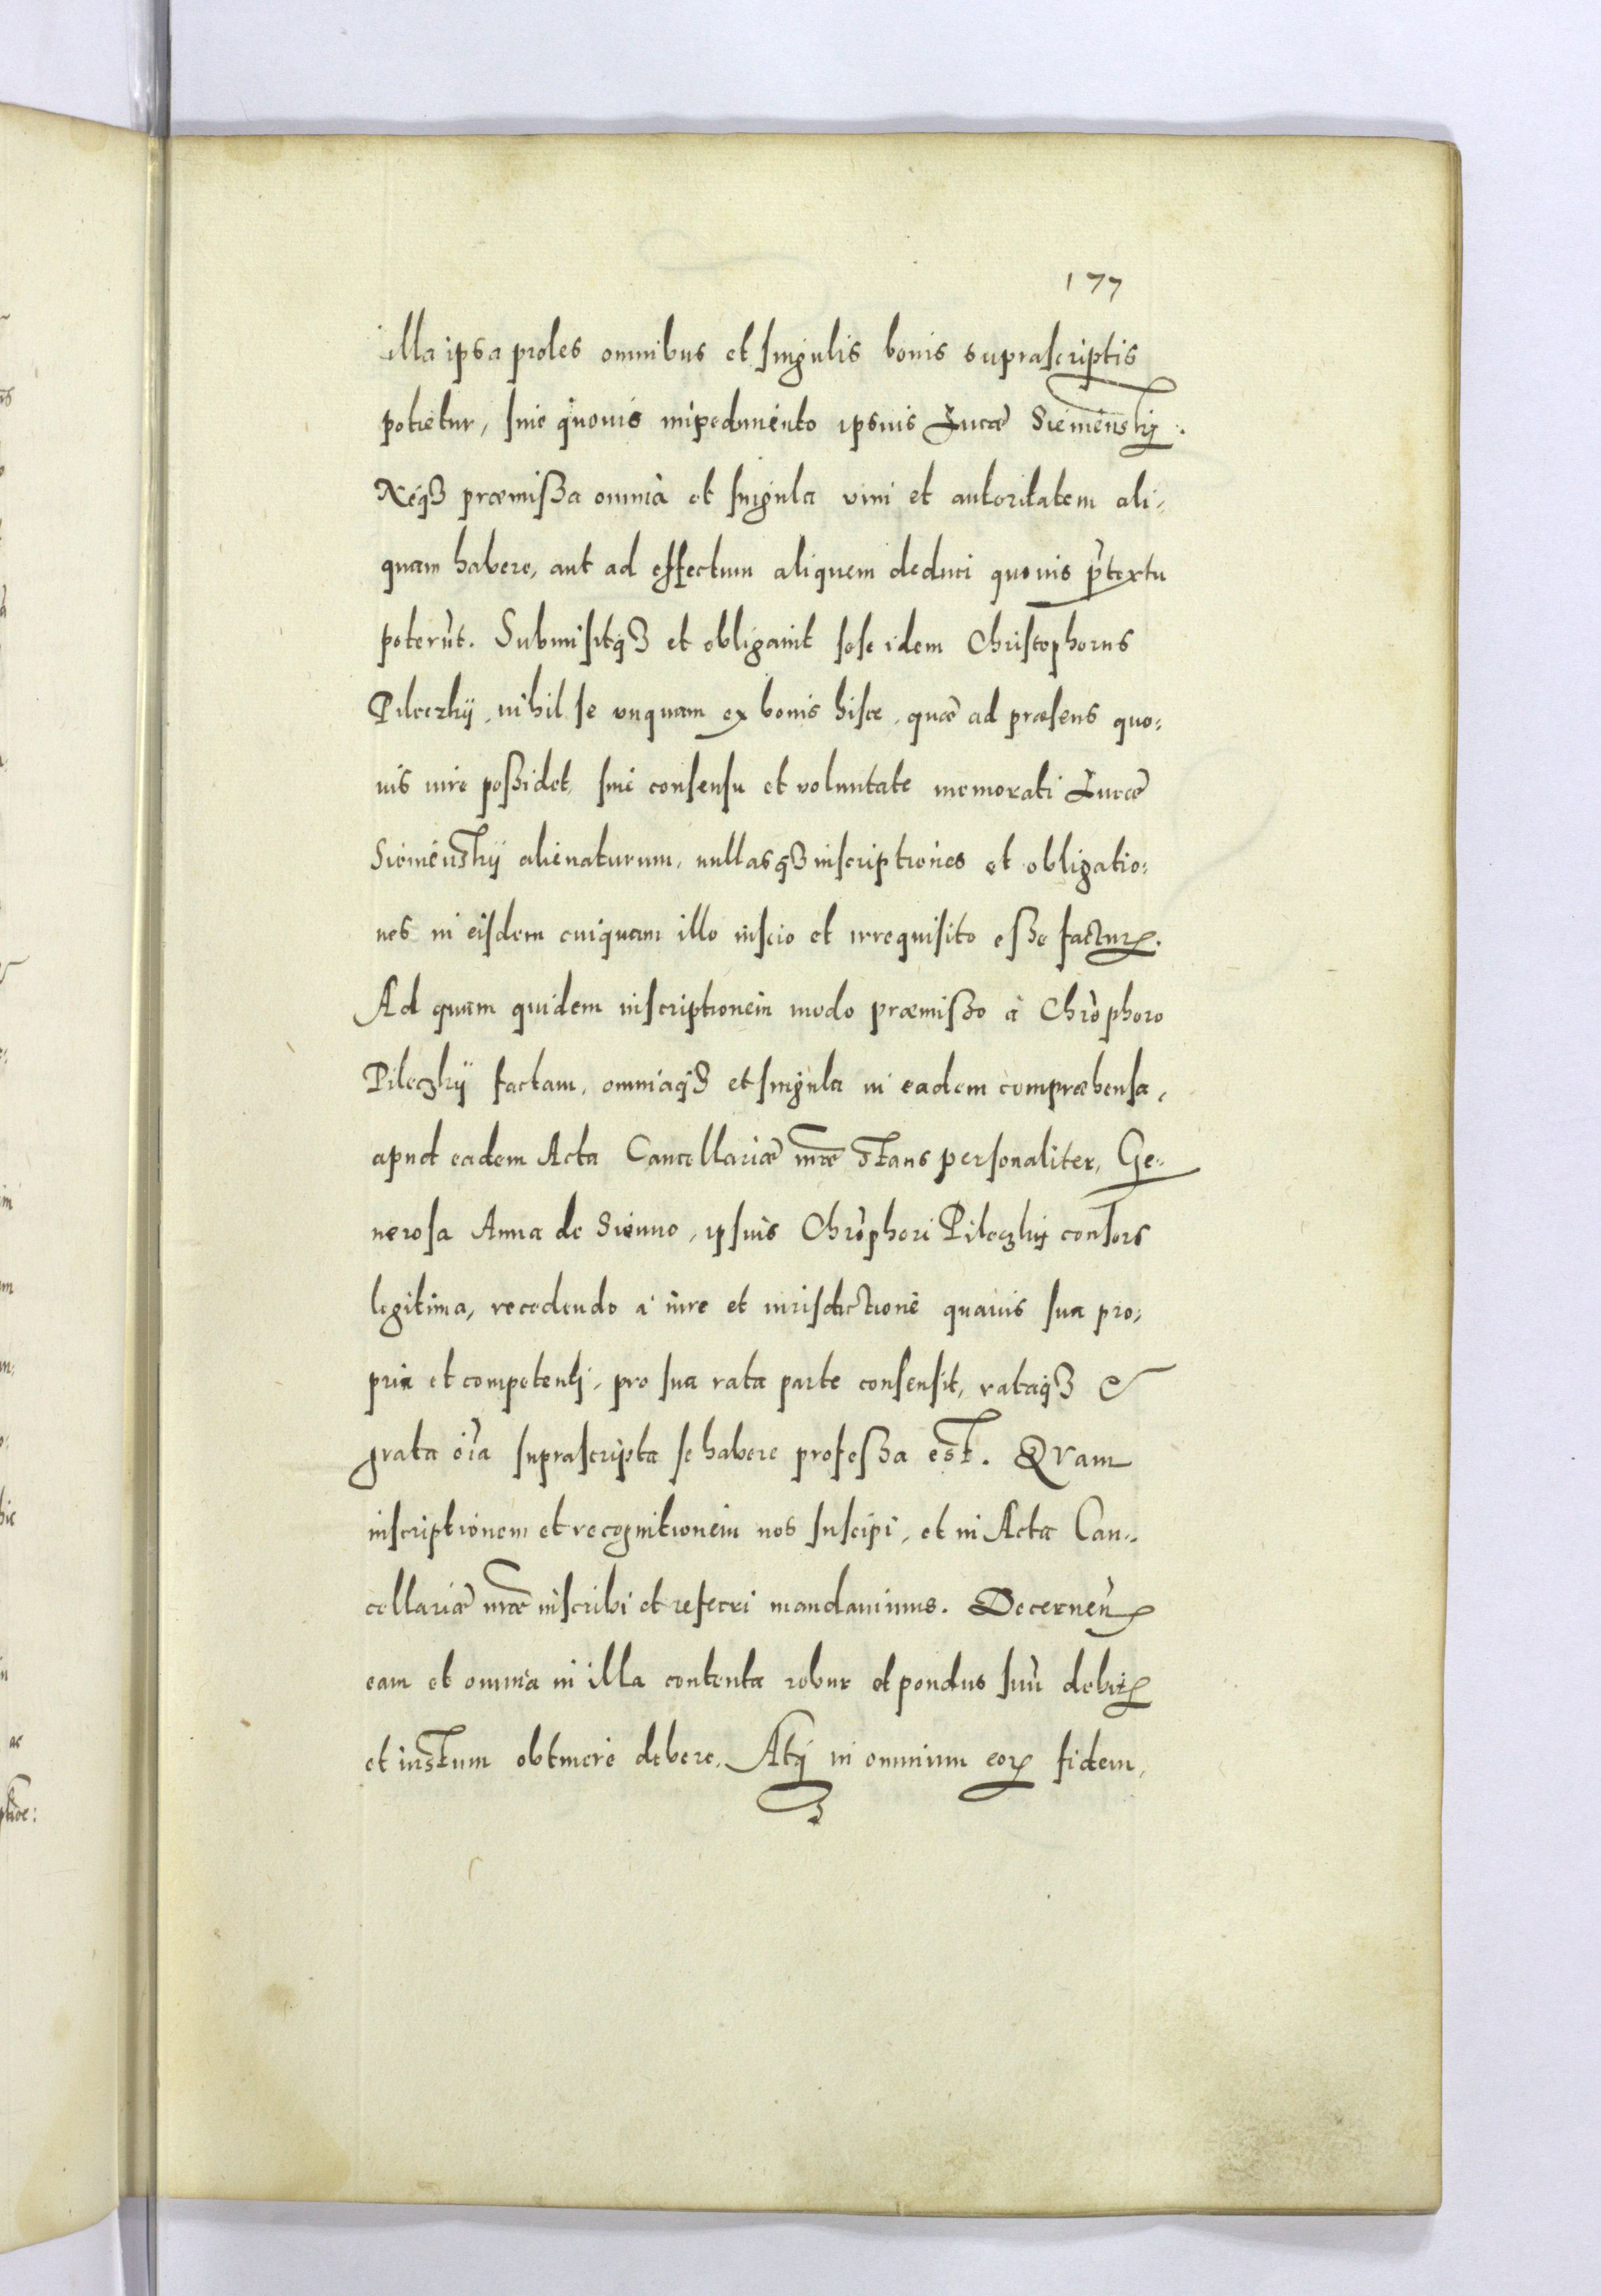 177
illa ipsa proles omnibus et singulis bonis suprascriptis
potietur, sine quouis impedimento ipsius Lucæ Siemiensky.
Neq3 præmißa omnia et singula vim et autoritatem ali-
quam habere, aut ad effectum aliquem deduci quouis p̀textu
poterùt. Submisitq3 et obligauit sese idem Christophorus
Pileczkÿ, nihil se vnquam ex bonis hisce, quæ ad præsens quo-
uis iure poßidet, sine consensu et voluntate memorati Lucæ
Siemienskÿ alienaturum, nullasq3 inscriptiones et obligatio-
nes in eisdem cuiquam illo inscio et irrequisito eße factuꝝ.
Ad quam quidem inscriptionem modo præmißo à Chrophoro
Pileczkÿ factam, omniaq3 et singula in eadem compræhensa,
apud eadem Acta Cancellariæ nr̃æ stans personaliter, Ge-
nerosa Anna de Sienno, ipsius Chrophori Pileczkÿ consors
legitima, recedendo à iure et iurisdictione quauis sua pro-
pria et competenti, pro sua rata parte consensit, rataq3 &
grata oìa suprascripta se habere profeßa est. QVam
inscriptionem et recognitionem nos suscipi, et in Acta Can-
cellariæ nr̃æ inscribi et referri mandauimus. Decerneñ
eam et omnia in illa contenta robur et pondus suù debitꝝ
et iustum obtinere debere. Atq3 in omnium eoꝝ fidem,